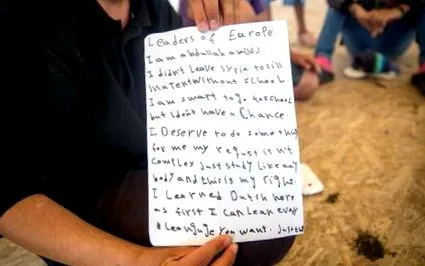 Leaders of Europe
I am abdullah
I didn't leave syria to sill
in a tent without school
I am smart to go to school
but i don't have a Chance.
I Deserve to do some thing
for me my request isn't
complex just study like any
body and this is my right.
I Learned Dutsh here
as first I can lean every
Leanguje you want. Just